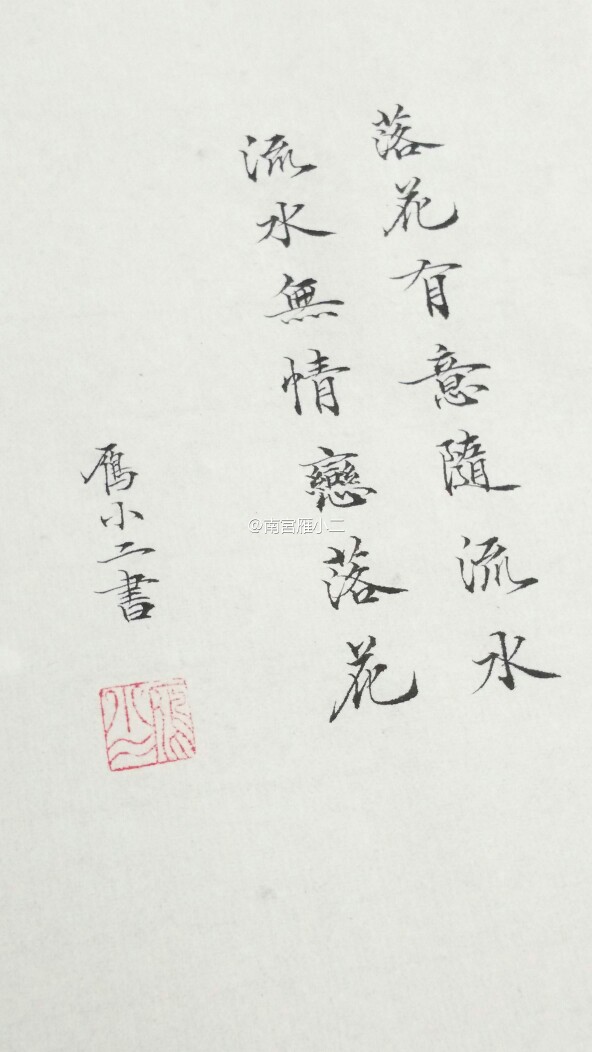 落花有意隨流水
流水無情戀落花
鴈小二書
@南宫雁小二
鴈小二